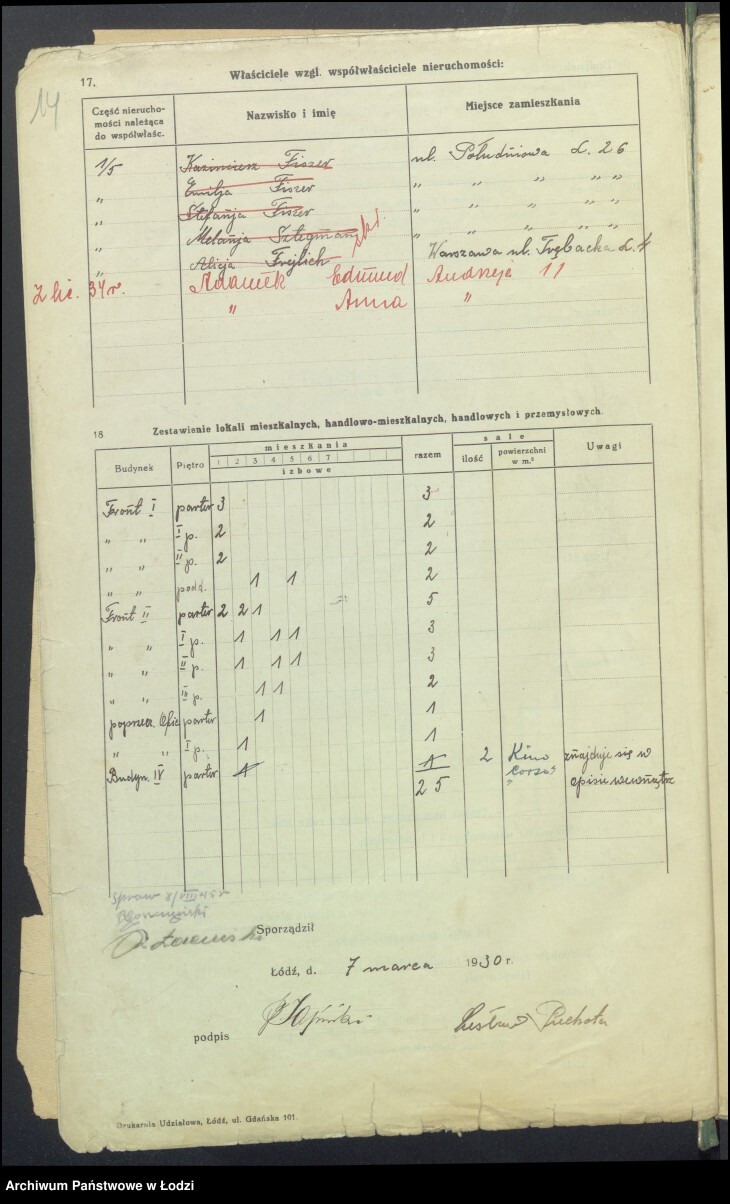 14
17.
Właściciele wzgl. współwłaściciele nieruchomości:
Część nierucho-
mości należąca
do współwłaśc.
Nazwisko i imię
Miejsce zamieszkania
1/5 Kazimierz Fiszer ul. Południowa L. 26
„ Emilja Fiszer „ „ „ „ „
„ Stefańja Fiszer „ „ „ „ „
„ Melańja Sztegmań „ „ „ „ „
„ Alicja Frejlich Warszawa ul. Trębacka L. 4
Z hic. 34 r. Adamek Edmund Andrzeja 11
„ Anna „
18
Zestawienie lokali mieszkalnych, handlowo-mieszkalnych, handlowych i przemysłowych.
Budynek
Piętro
mieszkania
1 2 3 4 5 6 7
izbowe
razem
sale
ilość
powierzchni
w m.²
Uwagi
Frońt I parter 3 3
„ „ I p. 2 2
„ „ II p. 2 2
„ „ podd. 1 1 2
Frońt II parter 2 2 1 5
„ „ I p. 1 1 1 3
„ „ II p. 1 1 1 3
„ „ III p. 1 1 2
poprzecz. Ofic parter 1 1
„ „ I p. 1 1
Budyn. IV parter 1 1 2 Kino zńajduje się w
25 Corso" opisie wewńątrz
Spraw
Sporządził
Łódź, d. 7 marca 1930 r.
podpis
Drukarnia Udziałowa, Łódź, ul. Gdańska 101.
Archiwum Państwowe w Łodzi